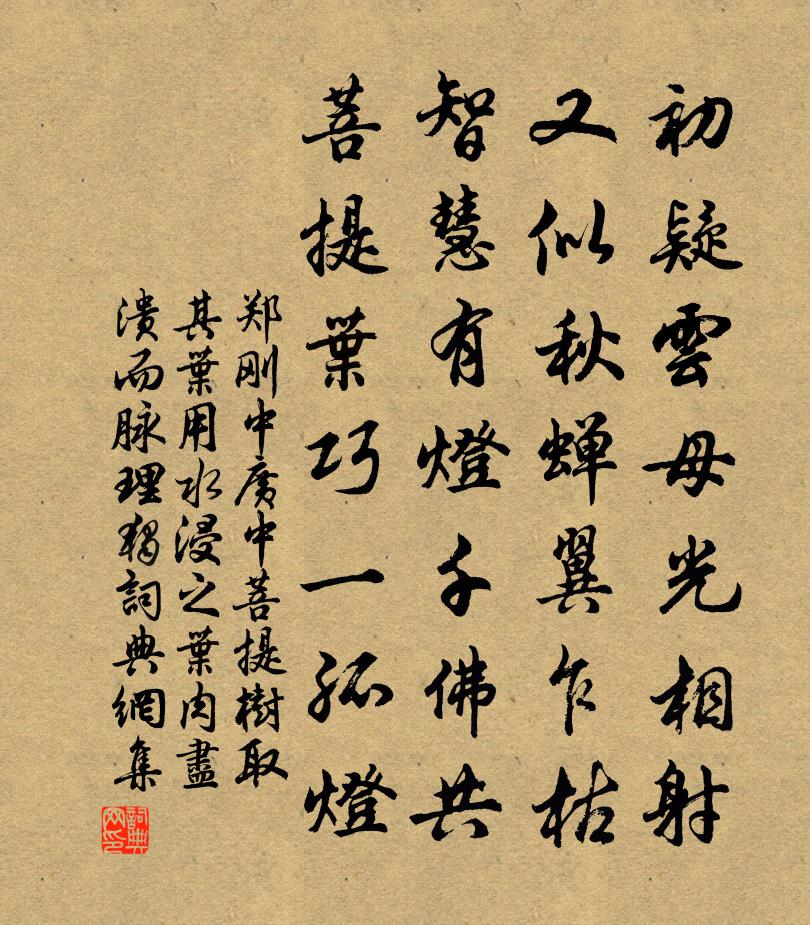 初疑雲母光相射
又似秋蝉翼乍枯
智慧有燈千佛共
菩提葉巧一孤燈
郑刚中广中菩提樹取
其葉用水浸之葉肉盡
潰而脉理獨詞典網集
詞典